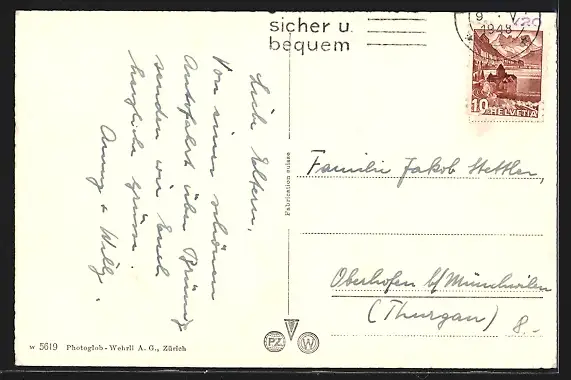 sicher u.
bequem
9. V.
1948
10 HELVETIA
Liebe Eltern,
Von einer schönen
Autofahrt über Brünig
senden wir Euch
herzliche Grüsse.
Anny + Willy.
Fabrication suisse
Familie Jakob Stettler,
Oberhofen b/ Münchwilen
(Thurgau)
8.-
PZ W
W 5619 Photoglob-Wehrli A. G., Zürich